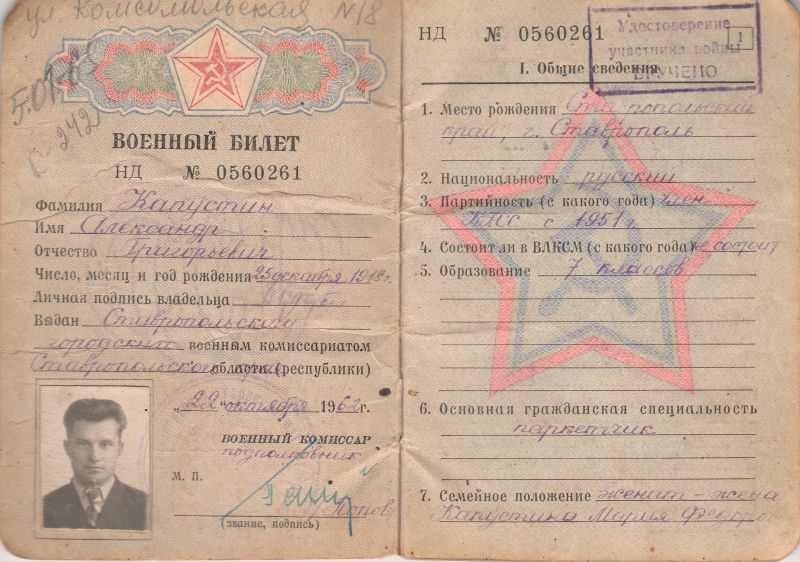 ул. Комсомольская N 18
5.01.6
242
ВОЕННЫЙ БИЛЕТ
НД № 0560261
Фамилия Капустин
Имя Александр
Отчество Григорьевич
Число, месяц и год рождения 25 декабря 1918 г.
Личная подпись владельца
Выдан Ставропольским
городским военным комиссариатом
Ставропольского края области (республики)
„22“ октября 1962 г.
ВОЕННЫЙ КОМИССАР
подполковник
М. П.
Попов
(звание, подпись)
НД № 0560261
1
Удостоверение
участника войны
ВРУЧЕНО
I. Общие сведения
1. Место рождения Ставропольский
край, г. Ставрополь
2. Национальность русский
3. Партийность (с какого года) член
КПСС с 1951 г
4. Состоит ли в ВЛКСМ (с какого года) не состоит
5. Образование 7 классов
6. Основная гражданская специальность
паркетчик
7. Семейное положение женат – жена
Капустина Мария Федоров